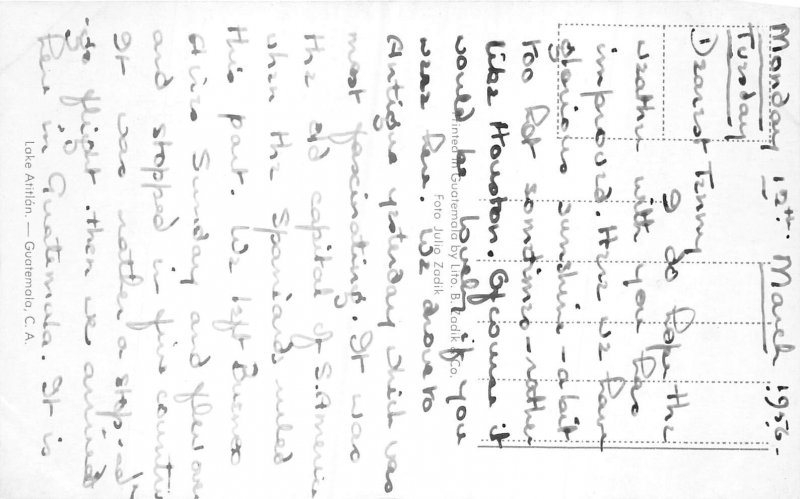 Monday 12th. March. 1956.
Tuesday
Dearest Tenny
I do hope the
weather with you has
improved. Here we have
glorious sunshine - a bit
too hot sometimes - rather
like Houston. Of course it
would be lovely if you
were here. We drove to
Antigua yesterday which was
most fascinating. It was
the old capital of S. America
when the Spaniards ruled
this part. We left Buenos
Aires Sunday and flew over
and stopped in five countries
It was rather a stop-and-
-go flight. then we arrived
here in Guatemala. It is
Printed in Guatemala by Lito. B. Zadik & Co.
Foto Julio Zadik
Lake Atitlán. — Guatemala, C. A.